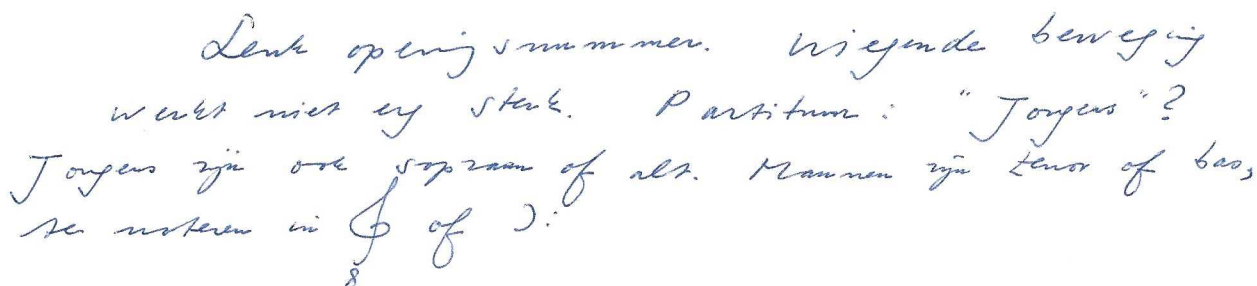 Leuk openingsnummer. Wiegende beweging
werkt niet erg sterk. Partituur: "Jongens"?
Jongens zijn ook sopraan of alt. Mannen zijn tenor of bas,
te noteren in 𝄞 of 𝄢
8